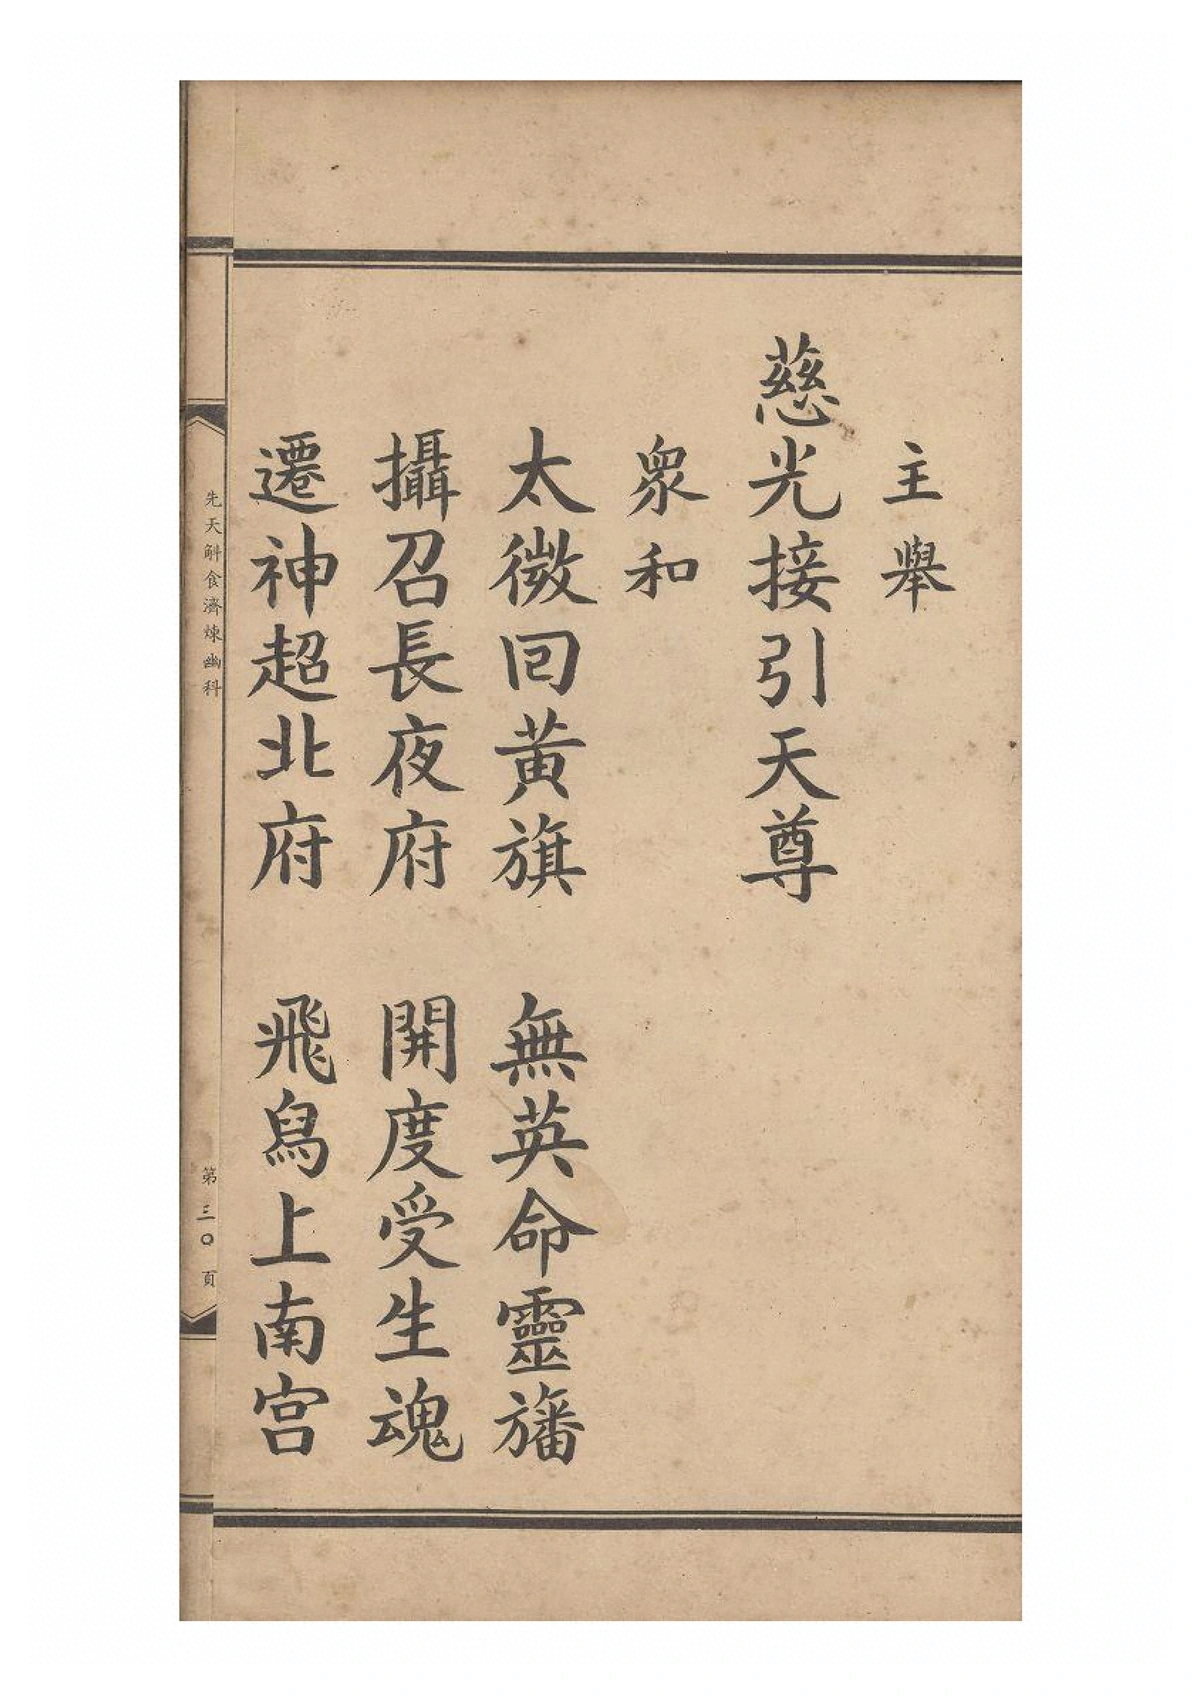 主舉
慈光接引天尊
眾和
太微回黃旗　無英命靈旛
攝召長夜府　開度受生魂
遷神超北府　飛舄上南宮
先天斛食濟煉幽科
第三〇頁